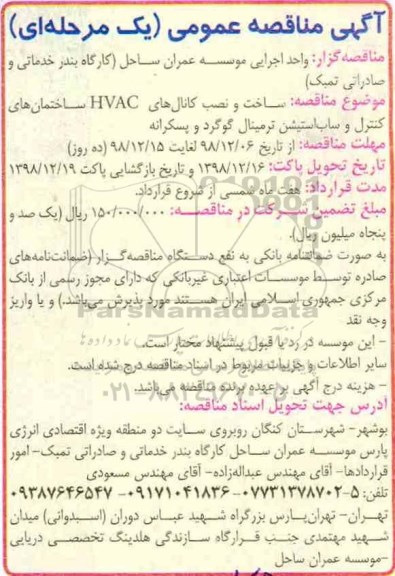 آگهی مناقصه عمومی (یک مرحله‌ای)
مناقصه‌گزار: واحد اجرایی موسسه عمران ساحل (کارگاه بندر خدماتی و
صادراتی تمبک)
موضوع مناقصه: ساخت و نصب کانال‌های HVAC ساختمان‌های
کنترل و ساب‌استیشن ترمینال گوگرد و پسکرانه
مهلت مناقصه: از تاریخ ۹۸/۱۲/۰۶ لغایت ۹۸/۱۲/۱۵ (ده روز)
تاریخ تحویل پاکت: ۱۳۹۸/۱۲/۱۶ و تاریخ بازگشایی پاکت ۱۳۹۸/۱۲/۱۹
مدت قرارداد: هفت ماه شمسی از شروع قرارداد.
مبلغ تضمین شرکت در مناقصه: ۱۵۰/۰۰۰/۰۰۰ ریال (یک صد و
پنجاه میلیون ریال).
به صورت ضمانتنامه بانکی به نفع دستگاه مناقصه‌گزار (ضمانت‌نامه‌های
صادره توسط موسسات اعتباری غیربانکی که دارای مجوز رسمی از بانک
مرکزی جمهوری اسلامی ایران هستند مورد پذیرش می‌باشد.) و یا واریز
وجه نقد
- این موسسه در رد یا قبول پیشنهاد مختار است.
سایر اطلاعات و جزییات مربوط در اسناد مناقصه درج شده است.
- هزینه درج آگهی بر عهده برنده مناقصه می‌باشد.
آدرس جهت تحویل اسناد مناقصه:
بوشهر- شهرستان کنگان روبروی سایت دو منطقه ویژه اقتصادی انرژی
پارس موسسه عمران ساحل کارگاه بندر خدماتی و صادراتی تمبک- امور
قراردادها- آقای مهندس عبداله‌زاده- آقای مهندس مسعودی
تلفن: ۵-۰۷۷۳۱۳۷۸۷۰۲ -۰۹۱۷۱۰۴۱۸۳۶ -۰۹۳۸۷۶۴۶۵۴۷
تهران- تهران‌پارس بزرگراه شهید عباس دوران (استبدوانی) میدان
شهید مهتمدی جنب قرارگاه سازندگی هلدینگ تخصصی دریایی
-موسسه عمران ساحل
ParsNamadData